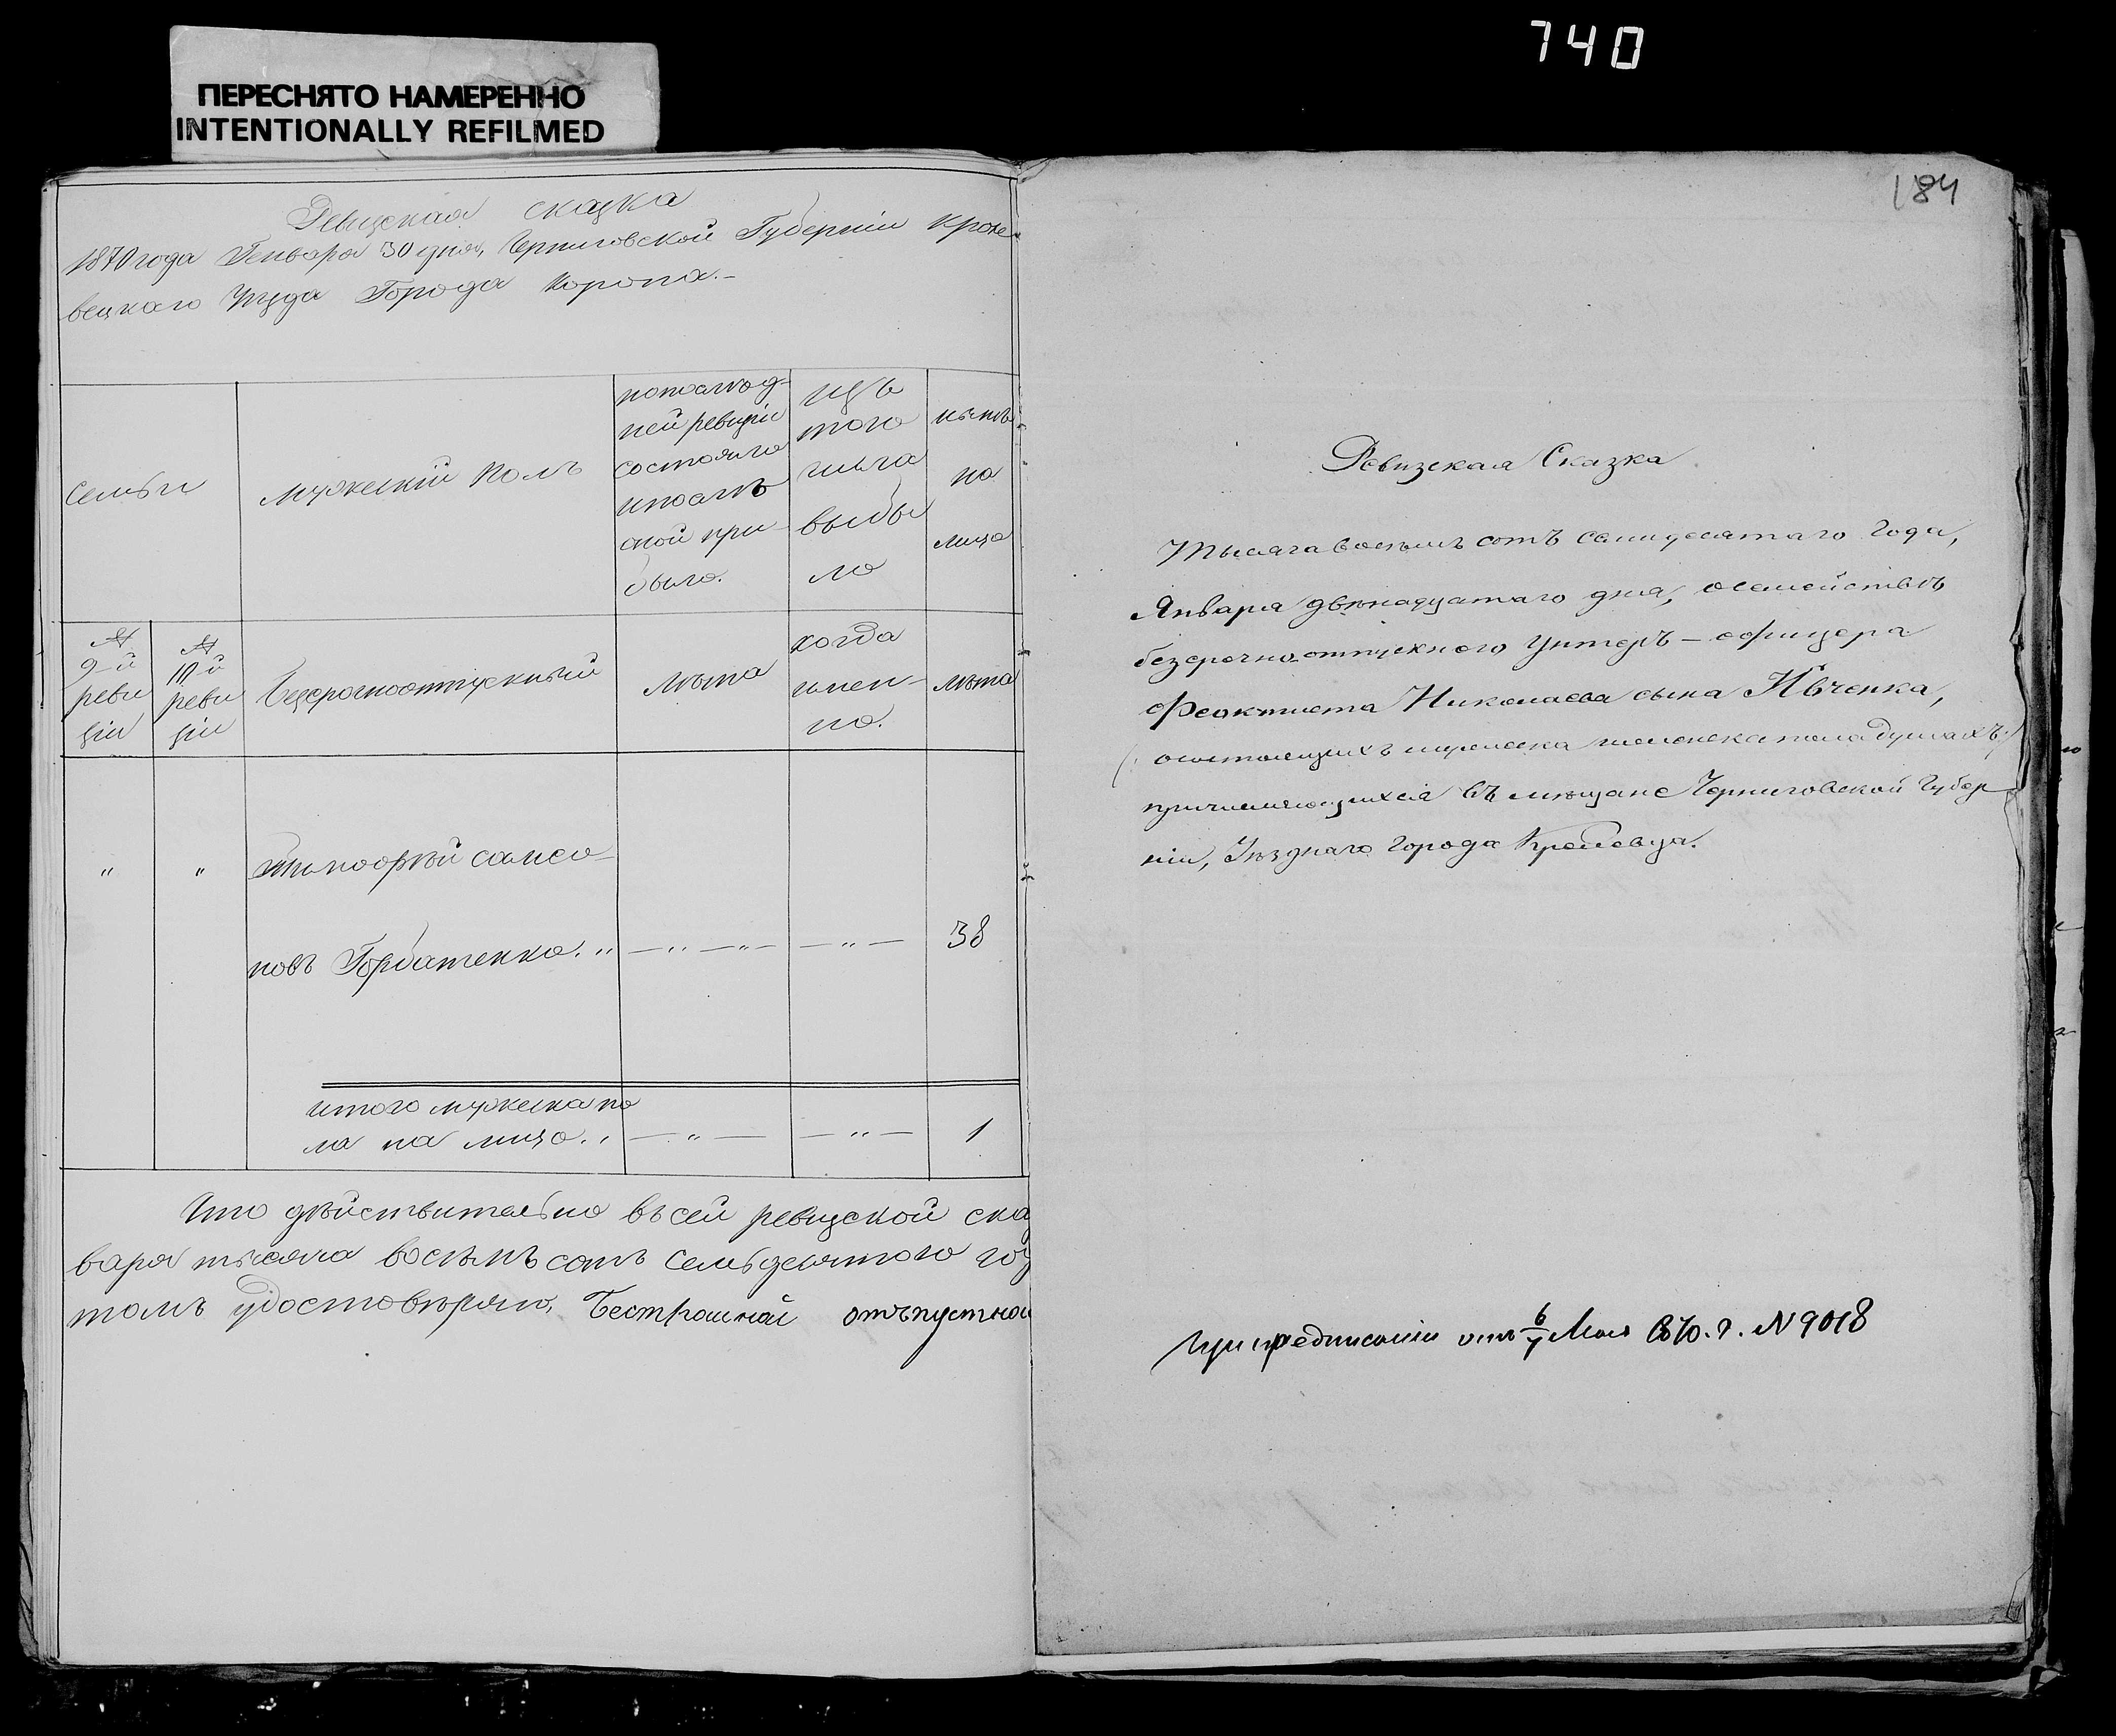 740
ПЕРЕСНЯТО НАМЕРЕННО
INTENTIONALLY REFILMED
Ревизская сказка
1870 года Генваря 30 дня, Черниговской Губерніи Кроле-
вецкаго Уезда Города Коропа.-
семьи
мужескій полъ
попослѣд-
ней ревизіи
состояло
ипослѣ
оной при-
было.
изъ
того
числа
выбы
ло
нынѣ
на
лицо
№
9-й
реви
зіи
№
10-й
реви
зіи
Безсрочноотпускный
лѣта
когда
имен-
но.
лѣта
" " Тимофѣй Самсо-
новъ Горбатенко. " — " — " — — " — 38
итого мужеска по
ла на лицо. , — " — — " — 1
Что дѣйствительно въ сей ревизской ска
варя тысяча восѣмъ сотъ семьдесятого го
томъ удостовѣряю, Бестрошной отъпустной
184
Ревизская Сказка
Тысяча восемь сотъ семидесятаго Года,
Января двѣнадцатаго дня, о семействѣ
безсрочно-отпускнаго Унтеръ-офицера
Феоктиста Николаева сына Ивченка,
(: состоящихъ мужеска женска пола душахъ:)
причисляющихся въ мѣщане Черниговской Губер-
ніи, Уѣзднаго Города Кролевца.
При предписаніи отъ 6/7 Мая 870. г. N 9018